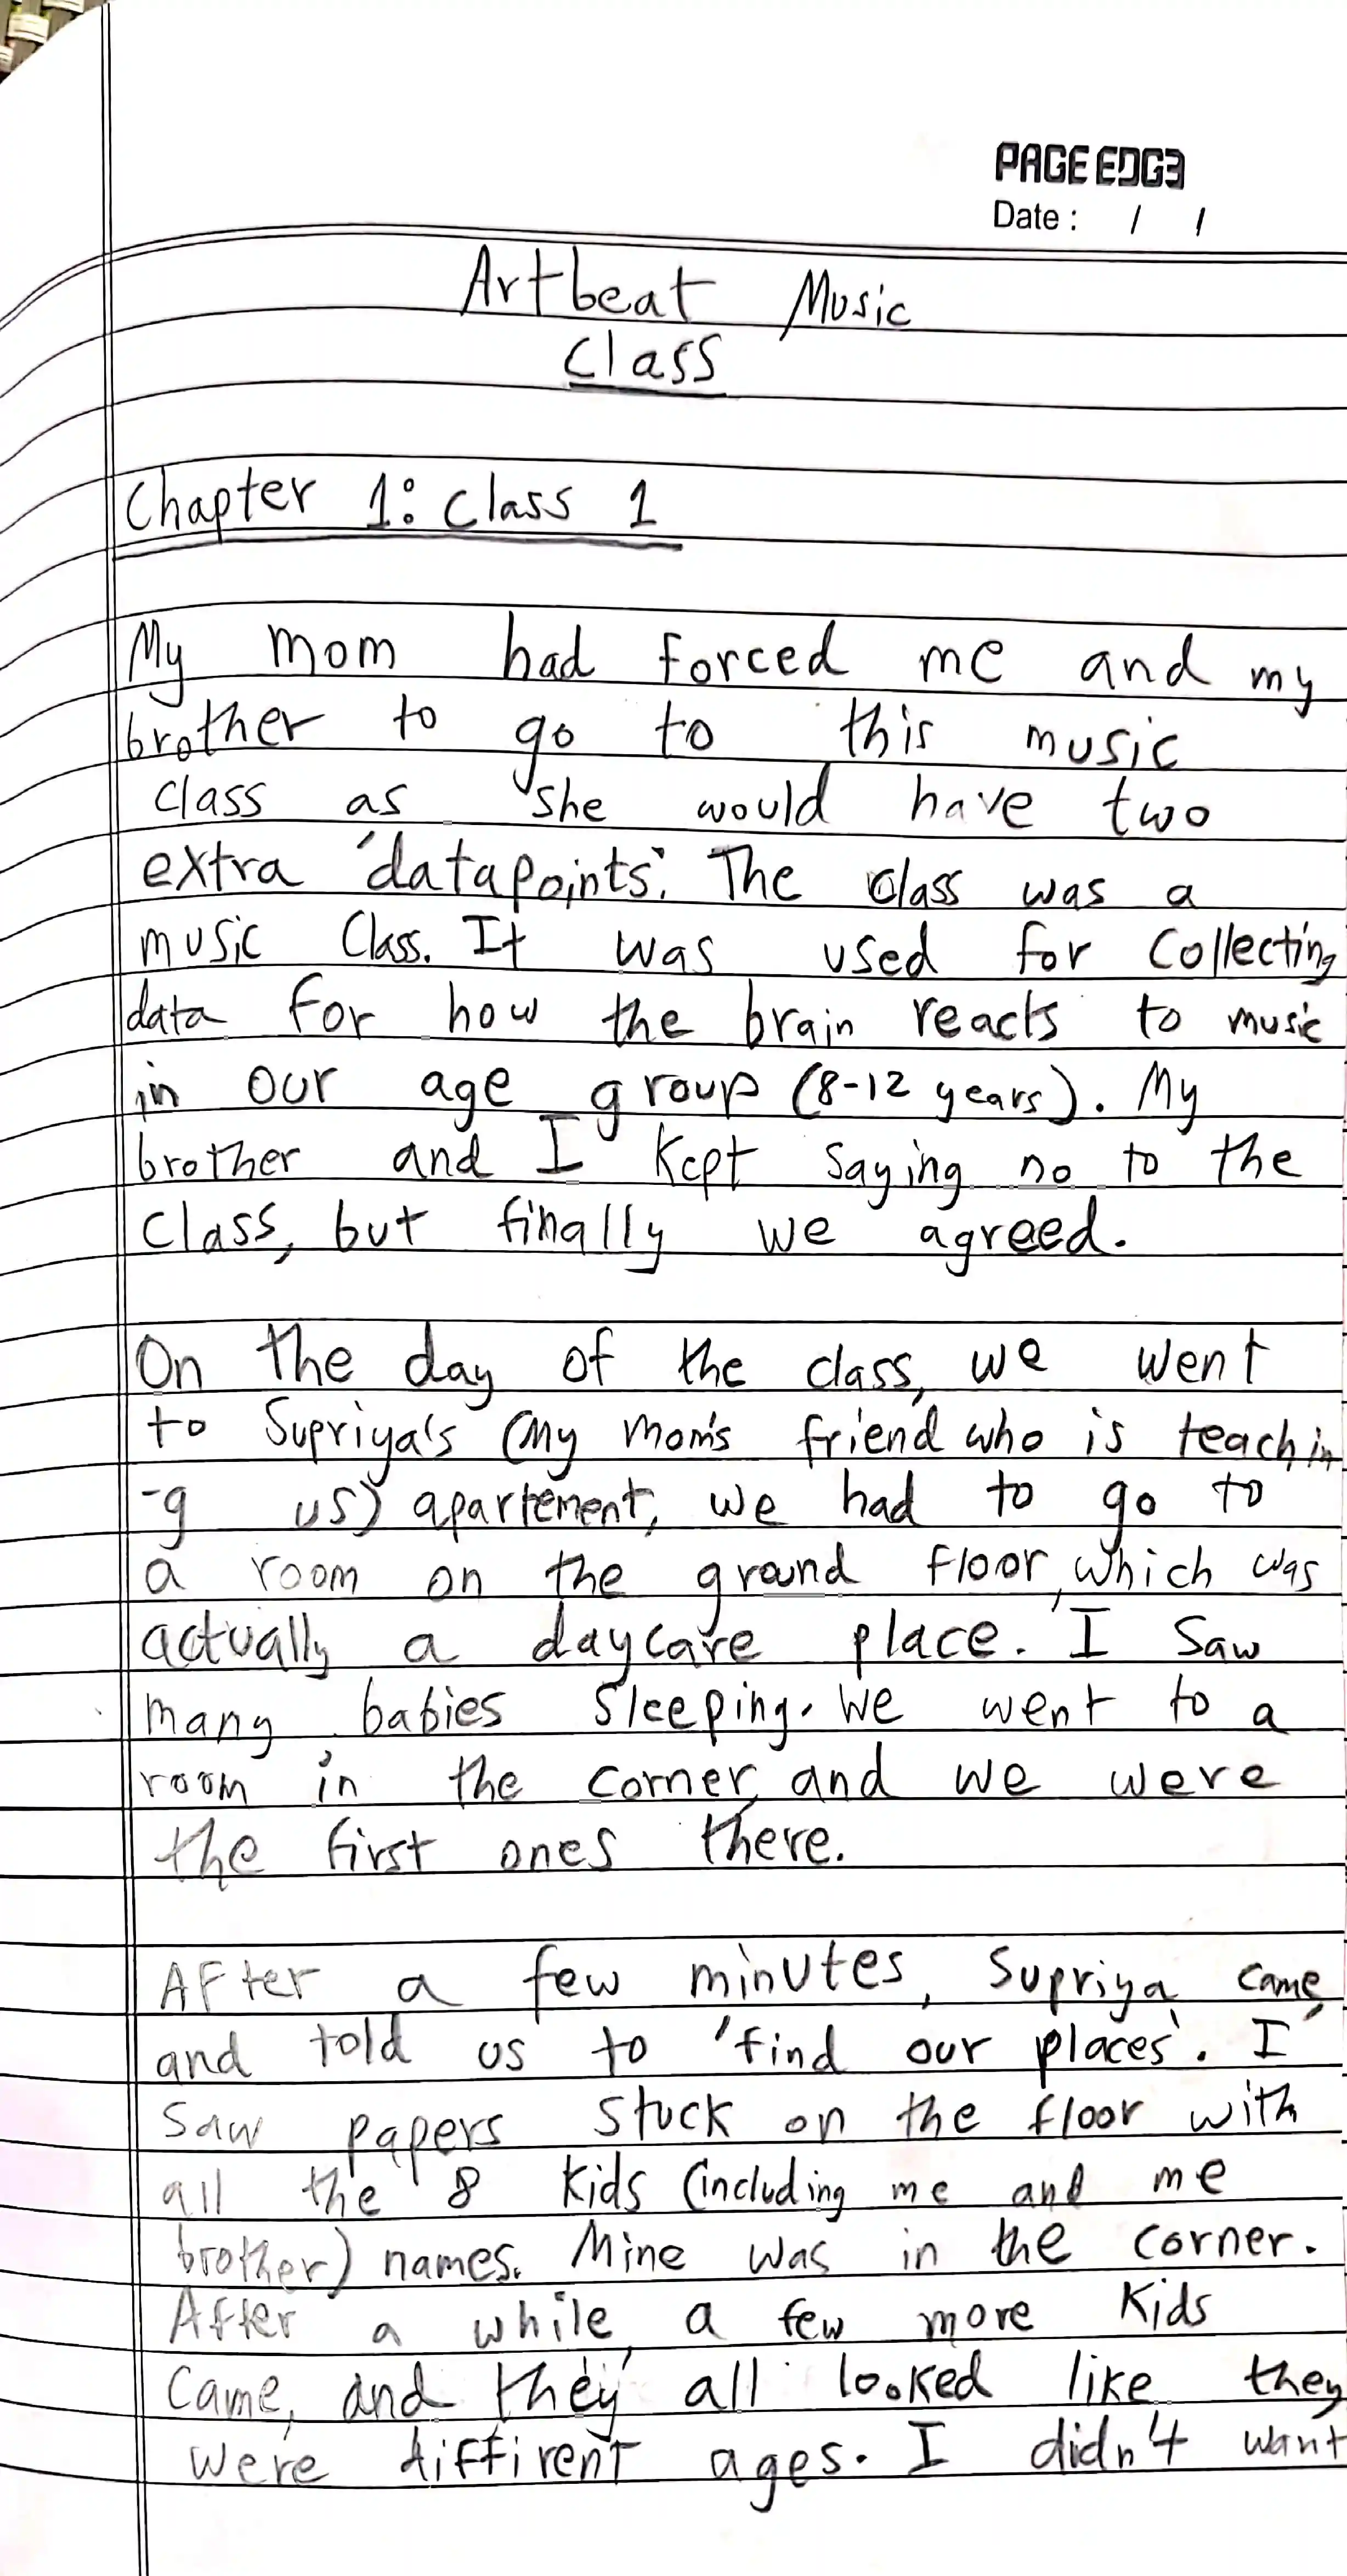 PAGE EDGE
Date : / /
Artbeat Music
Class
Chapter 1: Class 1
My mom had forced me and my
brother to go to this music
class as she would have two
extra 'datapoints'. The class was a
music Class. It was used for Collecting
data for how the brain reacts to music
in our age group (8-12 years). My
brother and I kept saying no to the
class, but finally we agreed.
On the day of the class, we went
to Supriya's (My mom's friend who is teachin
-g us) apartement, we had to go to
a room on the ground floor, which was
actually a daycare place. I saw
many babies sleeping. We went to a
room in the corner, and we were
the first ones there.
After a few minutes, Supriya came,
and told us to 'find our places'. I
saw papers stuck on the floor with
all the 8 kids (including me and me
brother) names. Mine was in the corner.
After a while, a few more kids
came, and they all looked like they
were diffirent ages. I didn't want